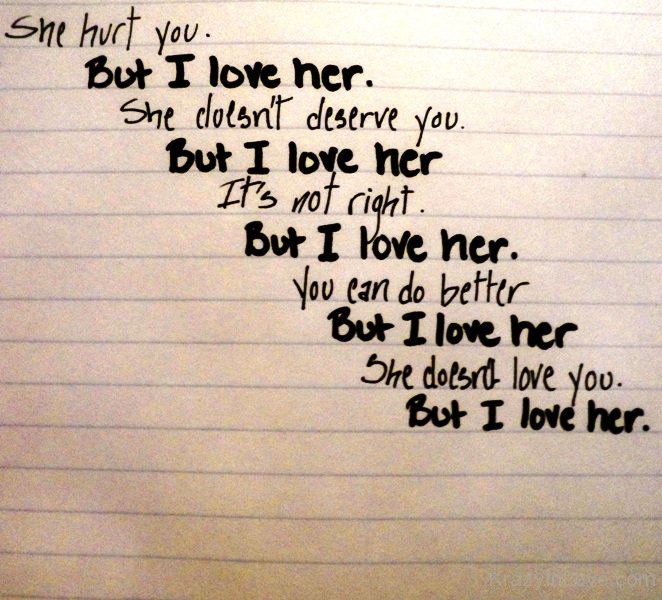 She hurt you.
But I love her.
She doesn't deserve you.
But I love her
It's not right.
But I love her.
You can do better
But I love her
She doesn't love you.
But I love her.
KrazyInLove.com